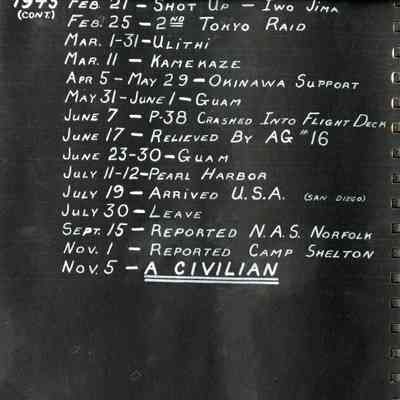 1945 FEB. 21 - SHOT UP - IWO JIMA
(CONT.)
FEB. 25 - 2ND TOKYO RAID
MAR. 1-31 - ULITHI
MAR. 11 - KAMEKAZE
APR 5 - MAY 29 - OKINAWA SUPPORT
MAY 31 - JUNE 1 - GUAM
JUNE 7 - P-38 CRASHED INTO FLIGHT DECK
JUNE 17 - RELIEVED BY AG #16
JUNE 23-30 - GUAM
JULY 11-12 - PEARL HARBOR
JULY 19 - ARRIVED U.S.A. (SAN DIEGO)
JULY 30 - LEAVE
SEPT. 15 - REPORTED N.A.S. NORFOLK
NOV. 1 - REPORTED CAMP SHELTON
NOV. 5 - A CIVILIAN